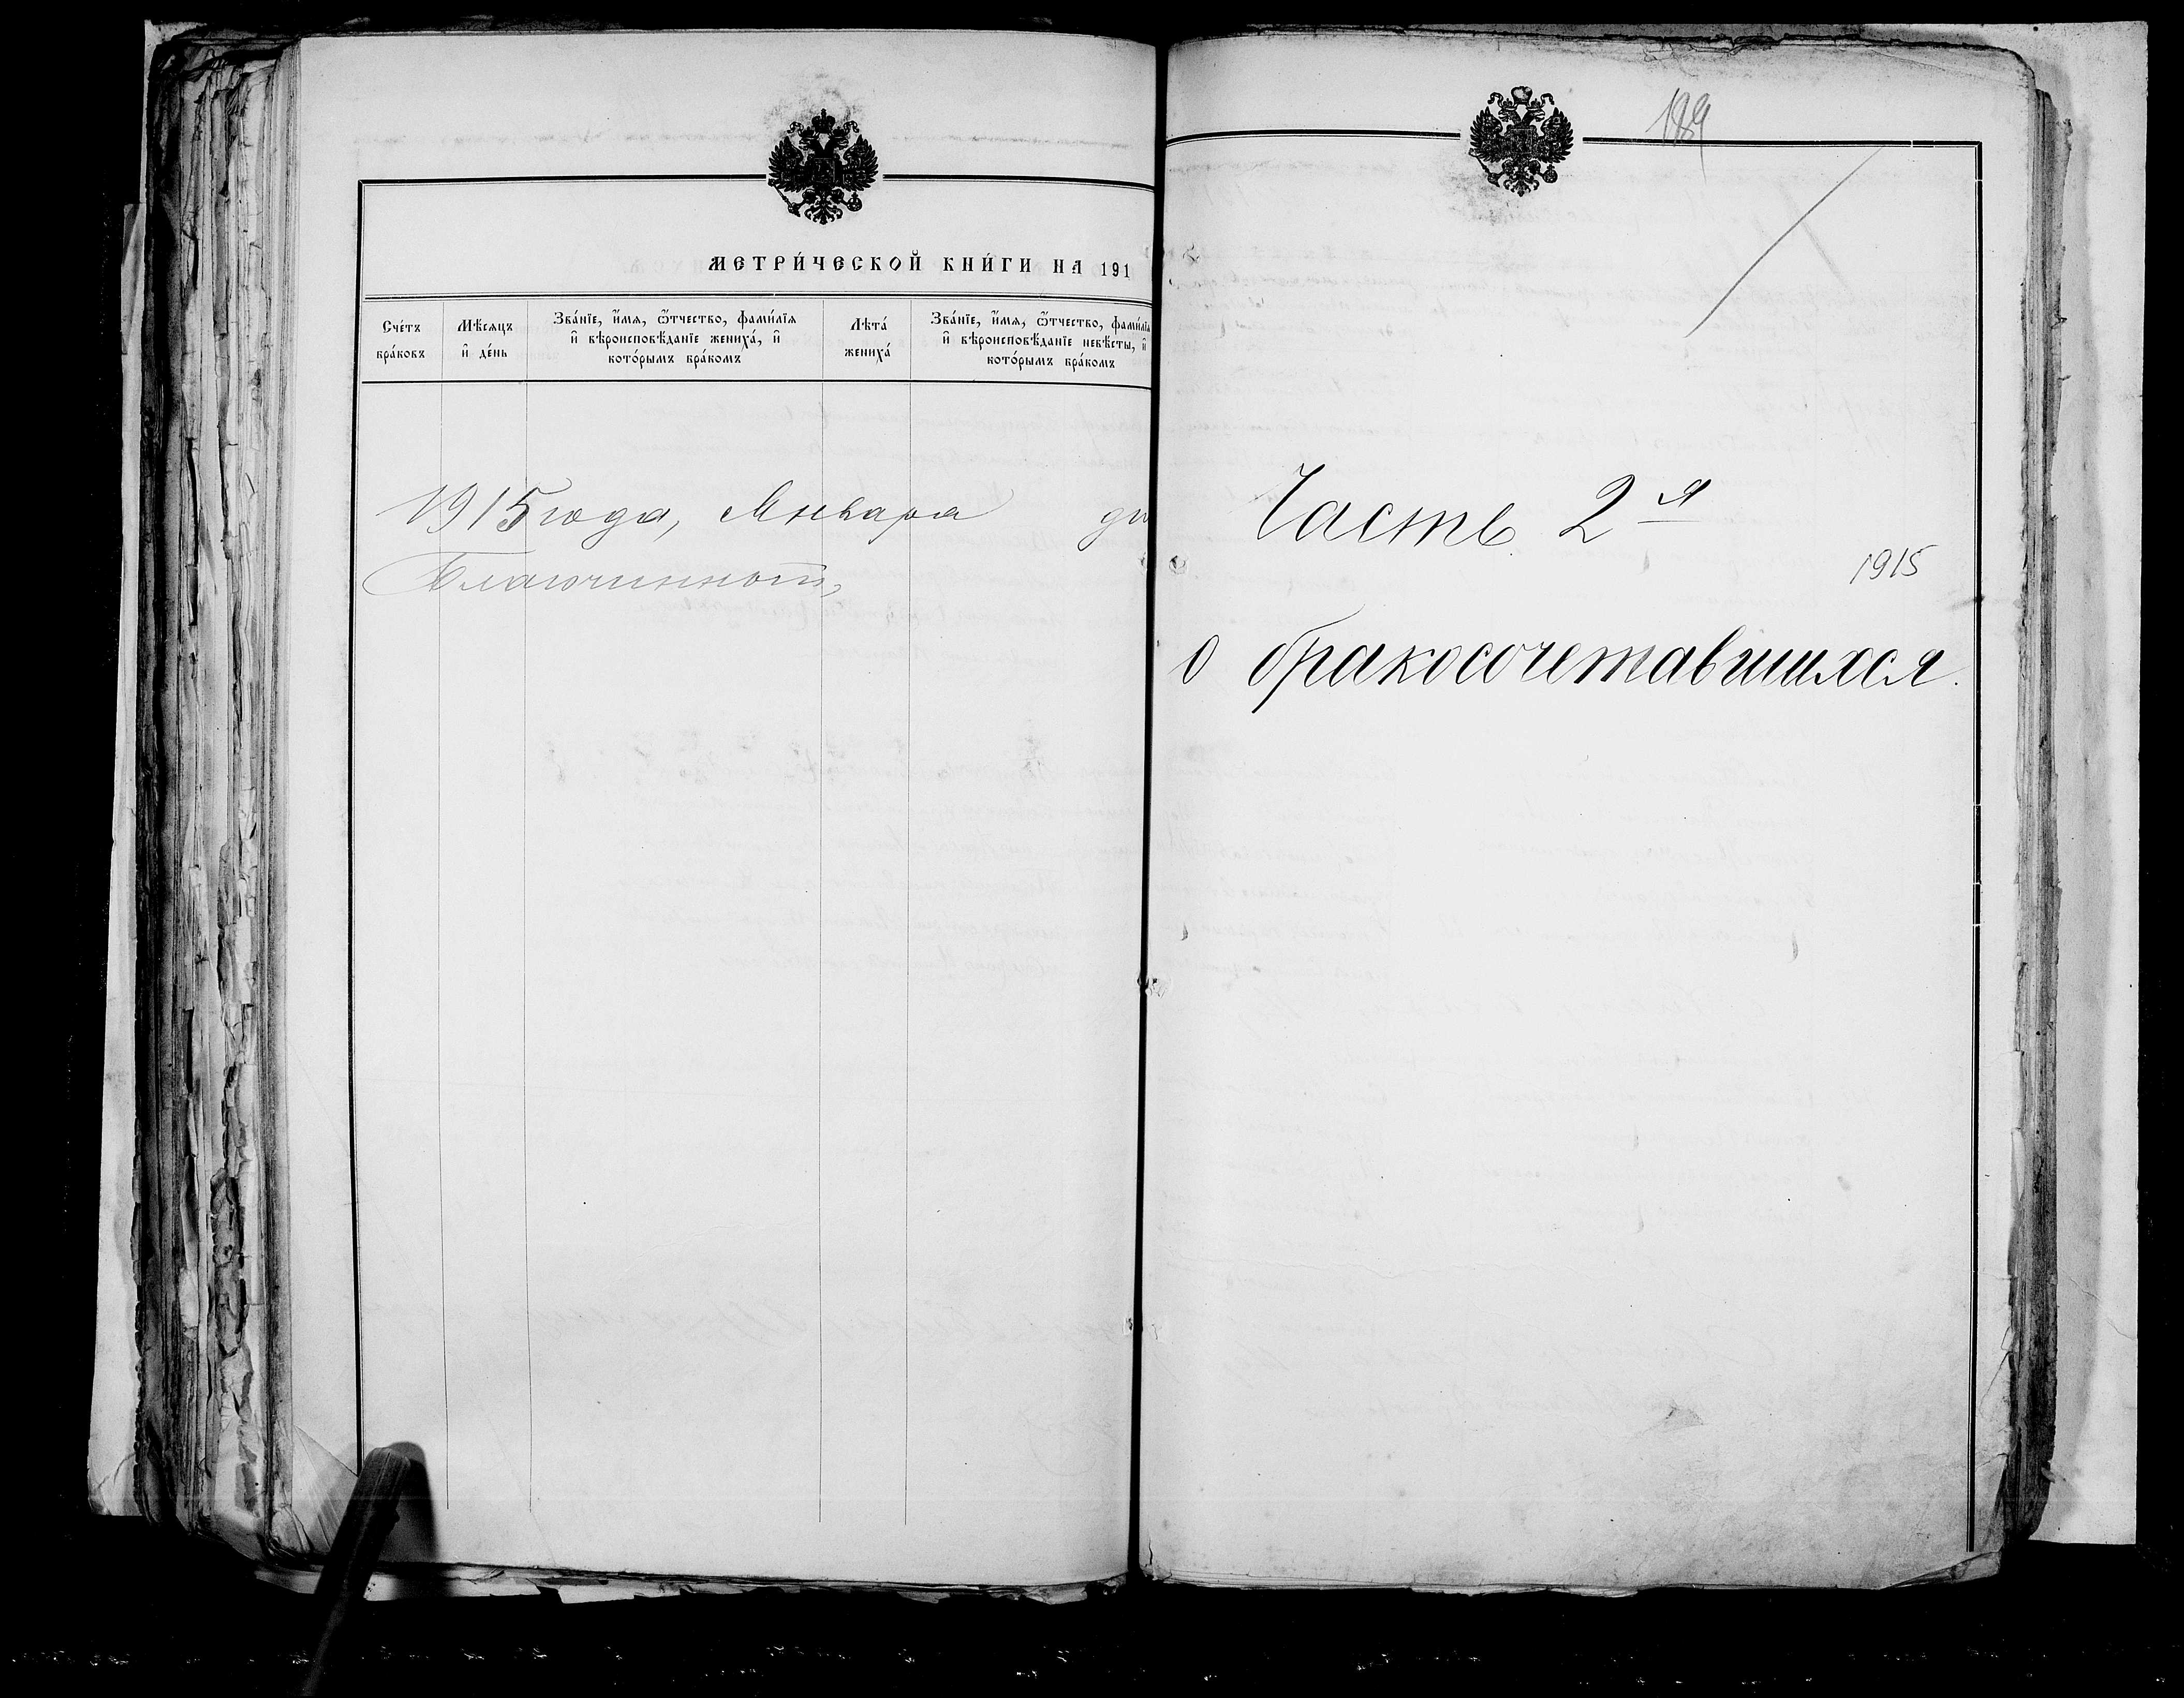 МЕТРИ́ЧЕСКОЙ КНИ́ГИ НА 191
Сче́тъ бра́ковъ
Мѣ́сяцъ и҆ де́нь
Зва́нїе, и҆́мя, ѻ҆́тчество, фами́лїя
и҆ вѣроисповѣ́данїе жениха́, и҆
кото́рымъ бра́комъ
Лѣта́ жениха́
Зва́нїе, и҆́мя, ѻ҆́тчество, фами́лїя
и҆ вѣроисповѣ́данїе невѣ́сты, и҆
кото́рымъ бра́комъ
1915 года, Января дн
Благочинный,
189
Часть 2я
1915
о бракосочетавшихся.